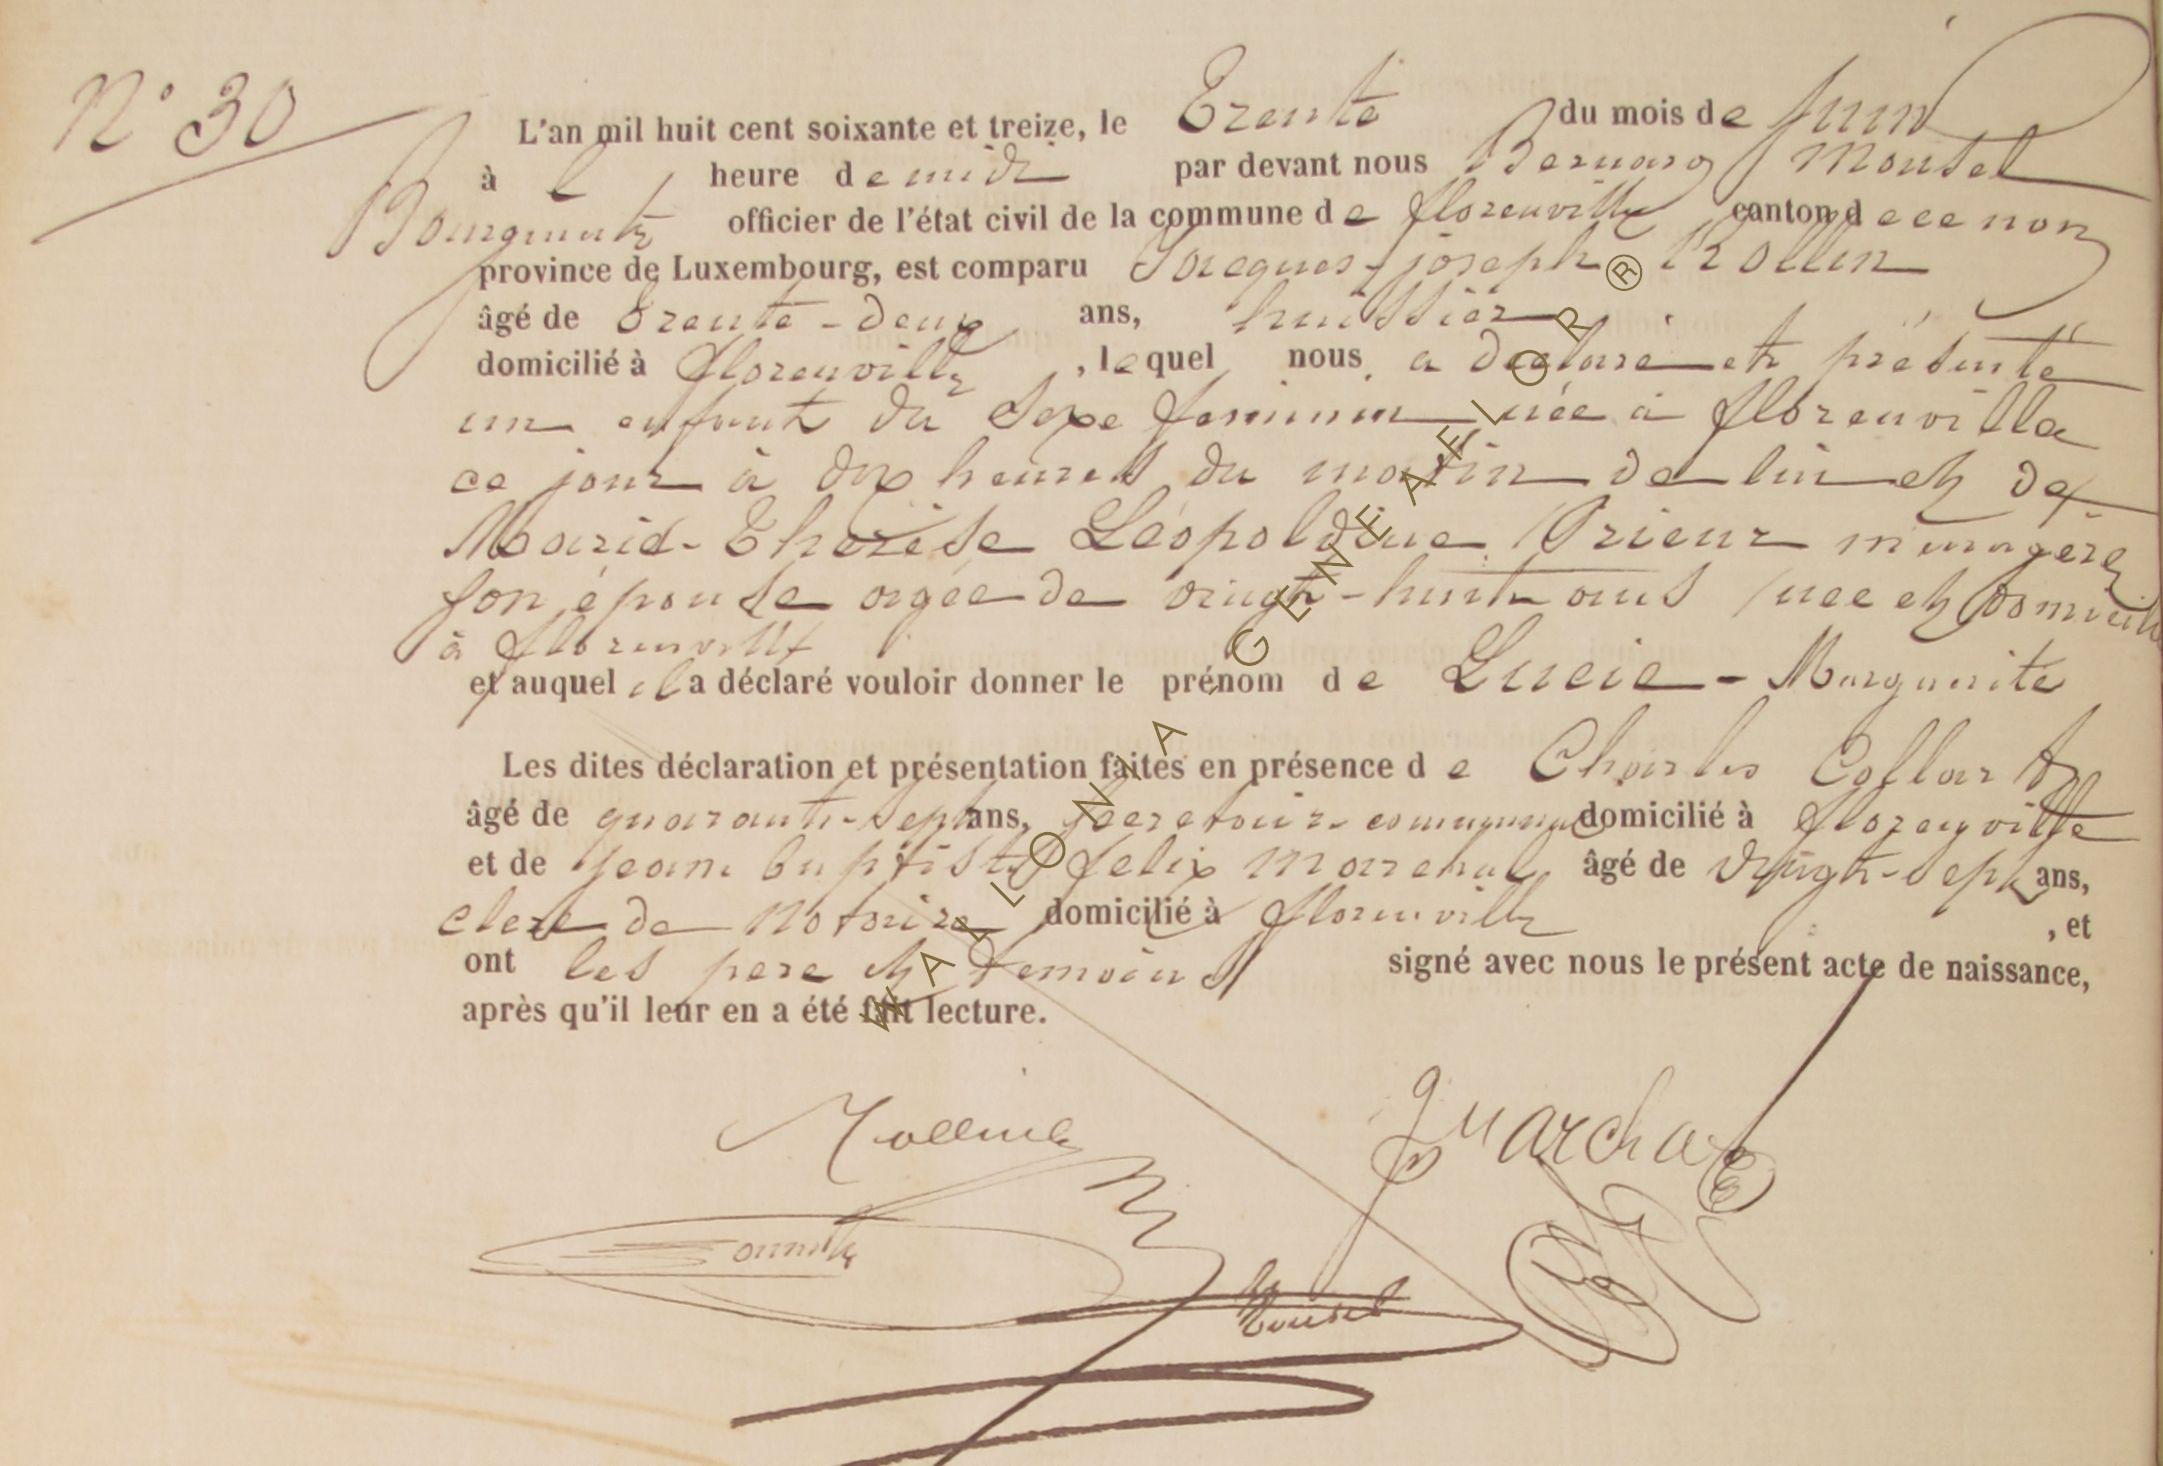 N° 30
L'an mil huit cent soixante et treize, le Trente du mois de Juin
à l' heure de midi par devant nous Bernard Mousel
Bourgmestre officier de l'état civil de la commune de florenville canton de ce nom
province de Luxembourg, est comparu Jacques-joseph Rollin
âgé de Trente-deux ans, huissier
domicilié à florenville, lequel nous a déclaré et présenté
un enfant du sexe feminin née à florenville
ce jour à dix heures du matin de lui et de
Marie-Thérèse Léopoldine Prieur ménagère
son épouse agée de vingt-huit ans née et domiciliée
à florenville
et auquel il a déclaré vouloir donner le prénom de Lucie-Marguerite
Les dites déclaration et présentation faites en présence de Charles Collart
âgé de quarante-sept ans, secretaire communal domicilié à florenville
et de jean baptiste felix Marechal âgé de vingt-sept ans,
clerc de Notaire domicilié à florenville, et
ont les pere et temoins signé avec nous le présent acte de naissance,
après qu'il leur en a été fait lecture.
WALLONIA GENEAFLOR ®
Mousel